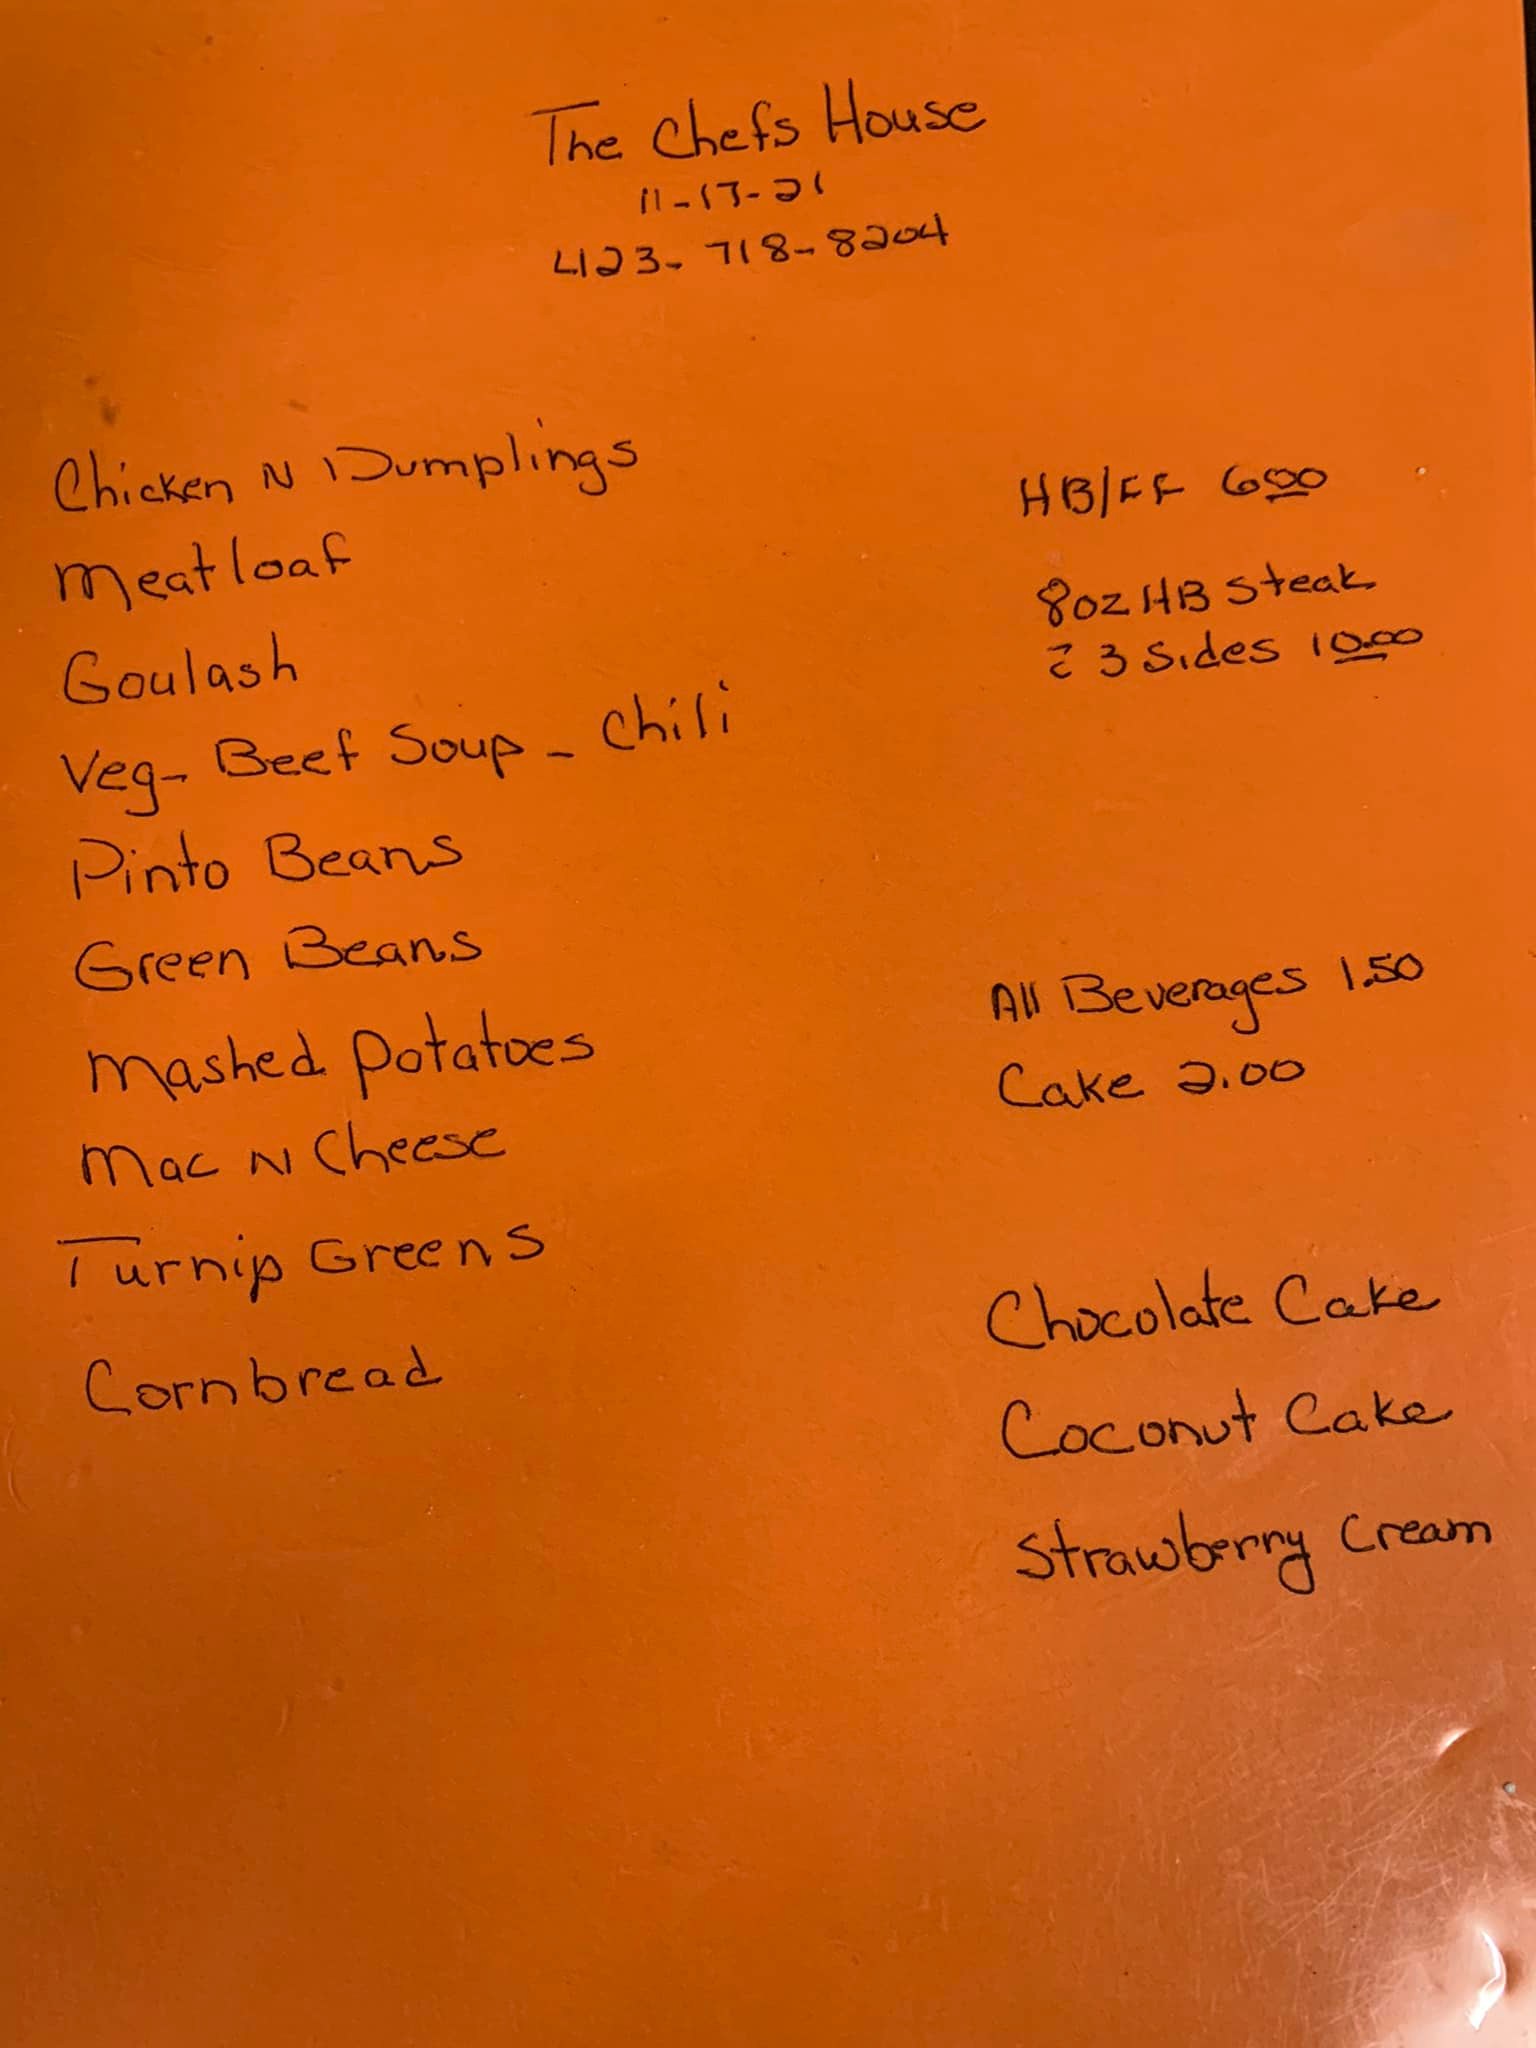 The Chefs House
11-17-21
423-718-8204
Chicken N Dumplings
Meatloaf
Goulash
Veg- Beef Soup - Chili
Pinto Beans
Green Beans
Mashed Potatoes
Mac N Cheese
Turnip Greens
Cornbread
HB/FF 6.00
8oz HB Steak
c̄ 3 Sides 10.00
All Beverages 1.50
Cake 2.00
Chocolate Cake
Coconut Cake
Strawberry Cream